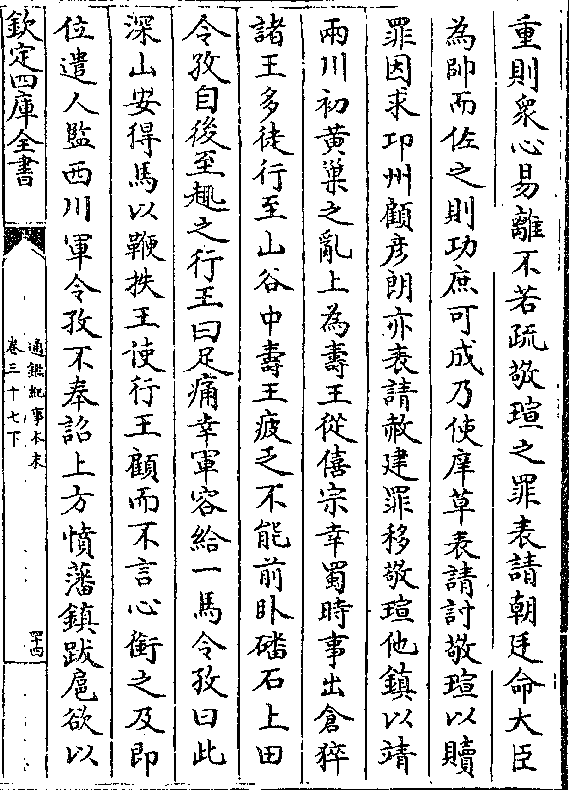 重則衆心易離不若疏敬瑄之罪表請朝廷命大臣
為帥而佐之則功庶可成乃使庠草表請討敬瑄以贖
罪因求邛州顧彦朗亦表請赦建罪移敬瑄他鎮以靖
兩川初黄巢之亂上為壽王從僖宗幸蜀時事出倉猝
諸王多徒行至山谷中壽王疲乏不能前卧磻石上田
令孜自後至趣之行王曰足痛幸軍容給一馬令孜曰此
深山安得馬以鞭抶王使行王顧而不言心銜之及即
位遣人監西川軍令孜不奉詔上方憤藩鎮跋扈欲以
欽定四庫全書
通鑑紀事本末
卷三十七下
四十四